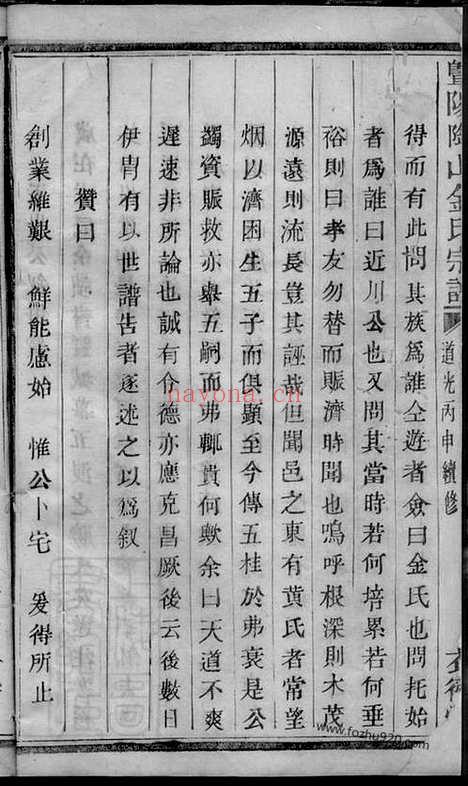 暨陽隂山金氏宗譜 道光丙申續修
得而有此問其族爲誰仝遊者僉曰金氏也問托始
者爲誰曰近川公也又問其當時若何培累若何垂
裕則曰孝友勿替而賑濟時聞也嗚呼根深則木茂
源遠則流長豈其誣哉但聞邑之東有黄氏者常望
烟以濟困生五子而俱顯至今傳五桂於弗衰是公
蠲資賑救亦舉五嗣而弗軱貴何歟余曰天道不爽
遲速非所論也誠有令德亦應克昌厥後云後數日
伊胄有以世譜告者遂述之以爲叙
贊曰
創業維艱 鮮能慮始 惟公卜宅 爰得所止
nayona.cn
www.fozhu920.com